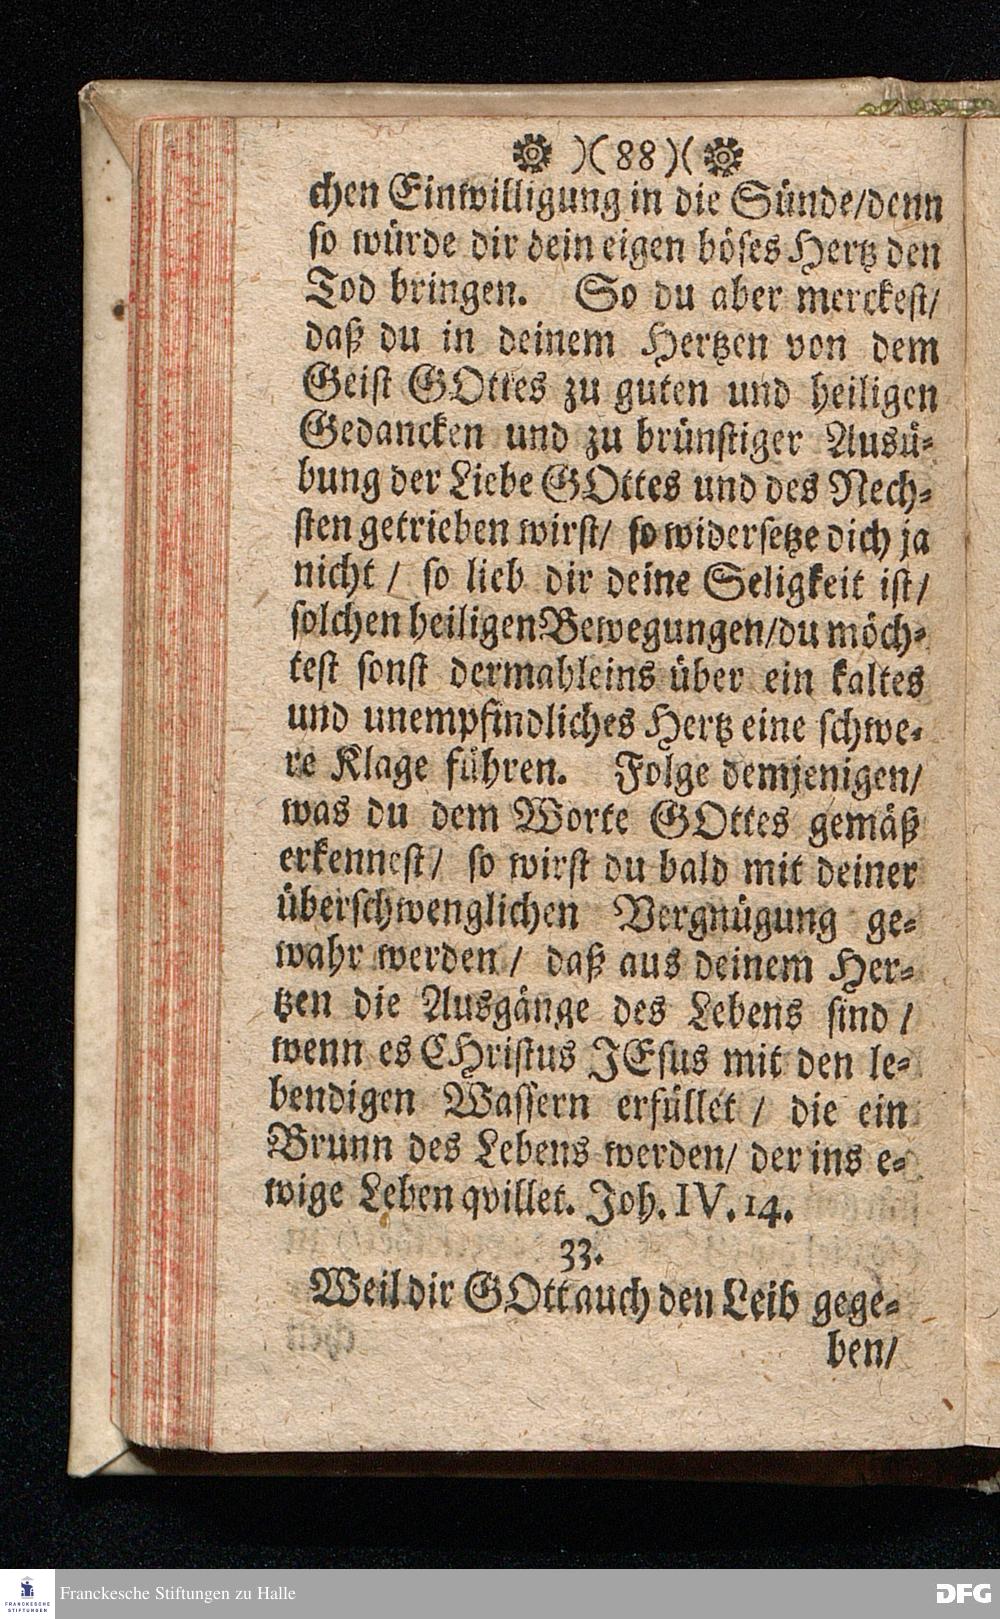 )( 88 )(
chen Einwilligung in die Sünde/denn
so würde dir dein eigen böses Hertz den
Tod bringen. So du aber merckest/
daß du in deinem Hertzen von dem
Geist GOttes zu guten und heiligen
Gedancken und zu brünstiger Ausü-
bung der Liebe GOttes und des Nech-
sten getrieben wirst/ so widersetze dich ja
nicht / so lieb dir deine Seligkeit ist/
solchen heiligen Bewegungen/du möch-
test sonst dermahleins über ein kaltes
und unempfindliches Hertz eine schwe-
re Klage führen. Folge demjenigen/
was du dem Worte GOttes gemäß
erkennest/ so wirst du bald mit deiner
überschwenglichen Vergnügung ge-
wahr werden / daß aus deinem Her-
tzen die Ausgänge des Lebens sind /
wenn es CHristus JEsus mit den le-
bendigen Wassern erfüllet / die ein
Brunn des Lebens werden/ der ins e-
wige Leben qvillet. Joh. IV. 14.
33.
Weil dir GOtt auch den Leib gege-
ben/
FRANCKESCHE STIFTUNGEN
Franckesche Stiftungen zu Halle
DFG